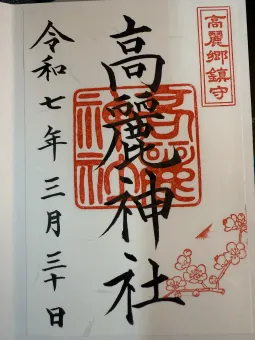 高麗郷鎮守
高麗神社
令和七年三月三十日